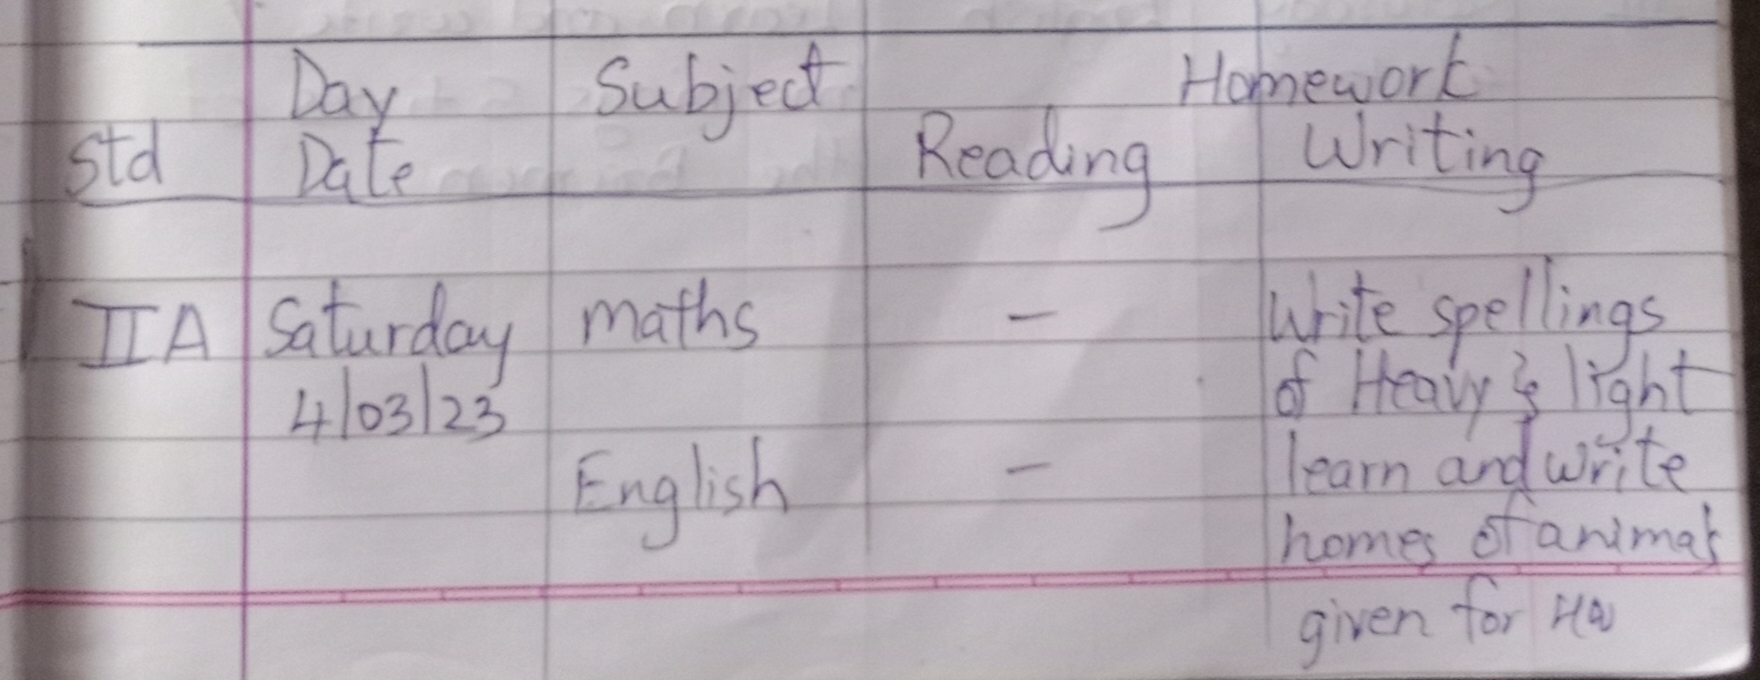 Day Subject Homework
Std Date Reading Writing
II A Saturday maths - Write spellings
4/03/23 of Heavy & light
English - learn and write
homes of animals
given for HW